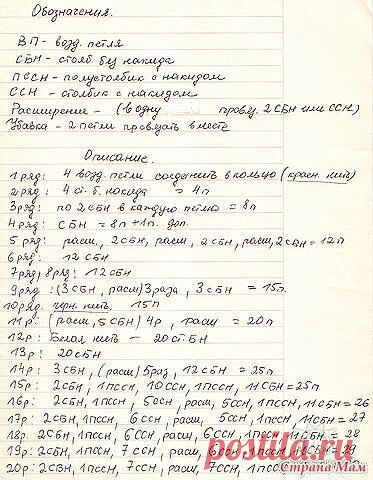 Обозначения.
ВП - возд. петля
СБН - столб. без накида
ПССН - полустолбик с накидом
ССН - столбик с накидом
Расширение - (в одну провяз. 2 СБН или ССН)
Убавка - 2 петли провязать вместе
Описание.
1 ряд: 4 возд. петли соединить в кольцо (красн. нить)
2 ряд: 4 ст. б. накида = 4п
3 ряд: по 2 СБН в каждую петлю = 8п
4 ряд: СБН = 8п + 1п. доп.
5 ряд: расш, 2СБН, расш, 2СБН, расш, 2СБН = 12п
6 ряд: 12 СБН
7 ряд, 8 ряд: 12 СБН
9 ряд: (3СБН, расш) 3 раза, 3СБН = 15п.
10 ряд: черн. нить. 15п
11р: (расш, 5СБН) 4р, расш = 20п
12р: Белая нить - 20 ст. БН
13р: 20СБН
14р: 3СБН, (расш) 5 раз, 12СБН = 25п
15р: 2СБН, 1пссн, 10ССН, 1пссн, 11СБН = 25п
16р: 2СБН, 1пссн, 5ссн, расш, 5ссн, 1пссн, 11СБН = 26
17р: 2СБН, 1пссн, 6ССН, расш, 5ссн, 1пссн, 11СБН = 27
18р: 2СБН, 1пссн, 6ССН, расш, 6ССН, 1пссн, 11СБН = 28
19р: 2СБН, 1пссн, 7ССН, расш, 6ССН, 1пссн,
20р: 2СБН, 1пссн, 7ссн, расш, 7ССН, 1пссн,
postila.ru
Страна Мам